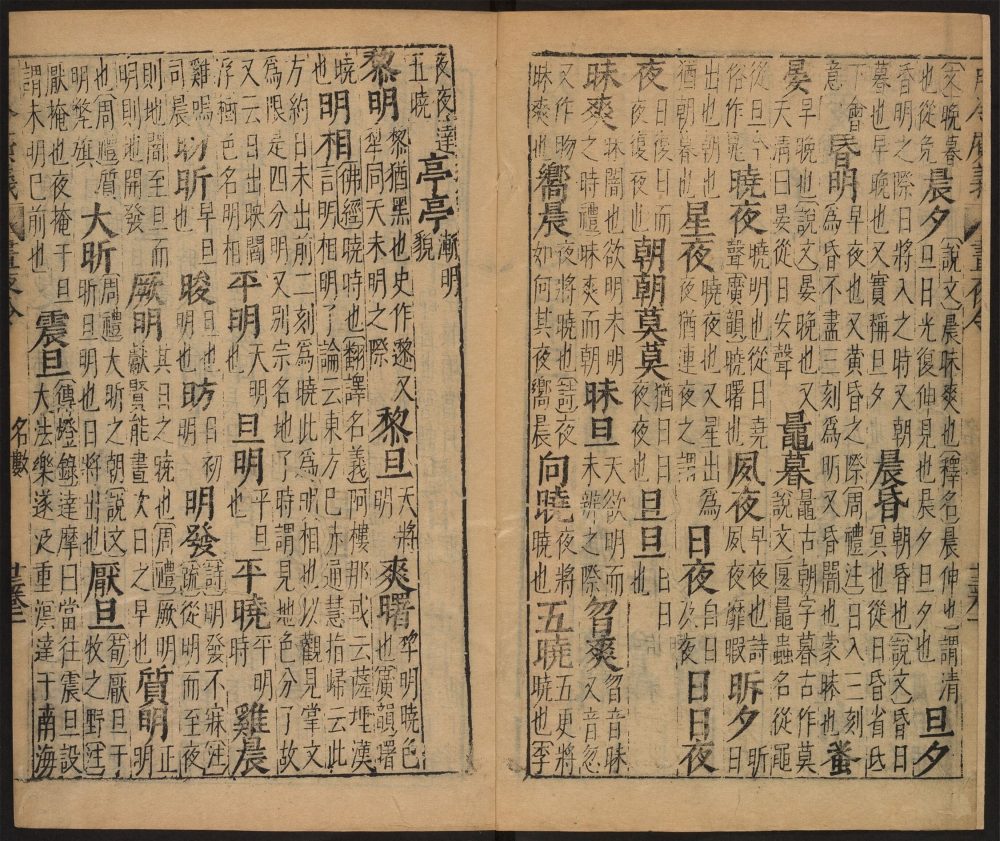 文晚暮也從免晨夕說文晨昧爽也釋名晨伸也謂清旦日光復伸見也晨夕旦夕也旦夕
昏明之際日將入之時又朝暮也早晚也又實稱旦夕晨昏朝昏也說文昏日冥也從日昏省氐
下會意昬明早夜也又黃昏之際周禮注日入三刻為昏不盡三刻為明又昏闇也蒙昧也蚤
晏早晚也說文晏晚也又天清曰晏從日安聲鼂暮鼂古朝字暮古作莫說文匽鼂蟲名從黽
從旦今俗作鼂曉夜曉明也從日堯聲廣韻曉曙也夙夜早夜也詩夙夜靡暇昕夕昕日
出也朝也猶朝暮也星夜曉夜也又星出為夜猶連夜之謂日夜白日及夜日日夜
夜日復日而夜復夜也朝朝莫莫猶日日夜夜也旦旦日日也
昧爽昧闇也欲明未明之時禮昧爽而朝昧旦天欲明而未辨之際曶爽曶音昧又音忽
又作昒昧爽也嚮晨夜將曉也詩夜如何其夜嚮晨向曉夜將曉也五曉五更將曉也李
夜夜達五曉亭亭漸明貌
黎明黎猶黑也史作邌又犂同天未明之際黎旦天將明爽曙犂明曉色也廣韻曙
曉也明相佛經曉時也翻譯名義阿樓那或云薩埵漢言明相明了論云東方已赤通慧指歸云此
方約日未出前二刻為曉此為明相也以觀見掌文為限是四分明又別宗名地了時謂見地色分了故
又云日出映閻浮樹色名明相平明天明也旦明平旦也平曉平明時雞晨
雞鳴司晨昕早旦也晙旦也明也昉日初明明發詩明發不寐注疏從明而至夜
則地闇至旦而明則地開發厥明其日之曉也周禮厥明獻賢能書次日之早也質明正明
也周禮質明弊旗大昕周禮大昕之朝說文昕旦明也日將出也厭旦荀厭旦于牧之野注
厭掩也夜掩于旦謂未明已前也震旦傳燈錄達摩曰當往震旦設大法藥遂汎重溟達于南海
名數